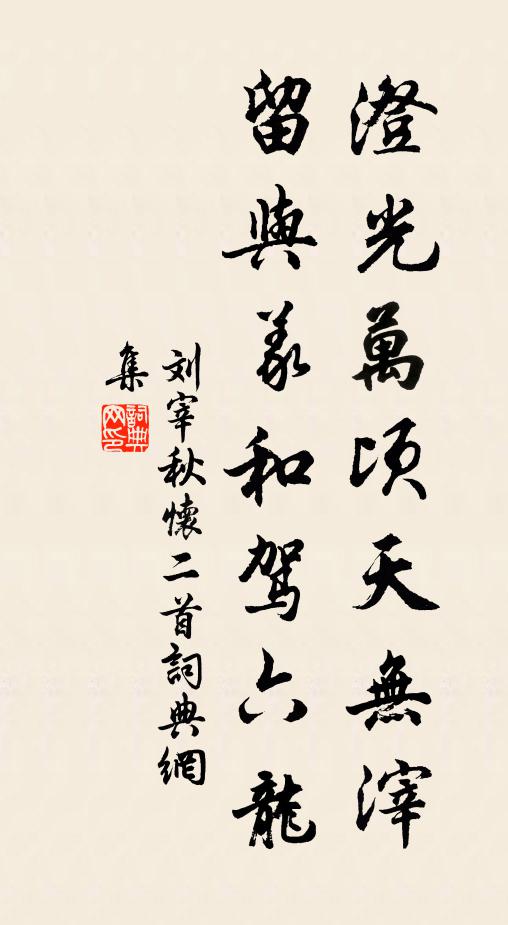 澄光萬頃天無滓
留與羲和駕六龍
刘宰秋懷二首詞典網
集
詞典网印